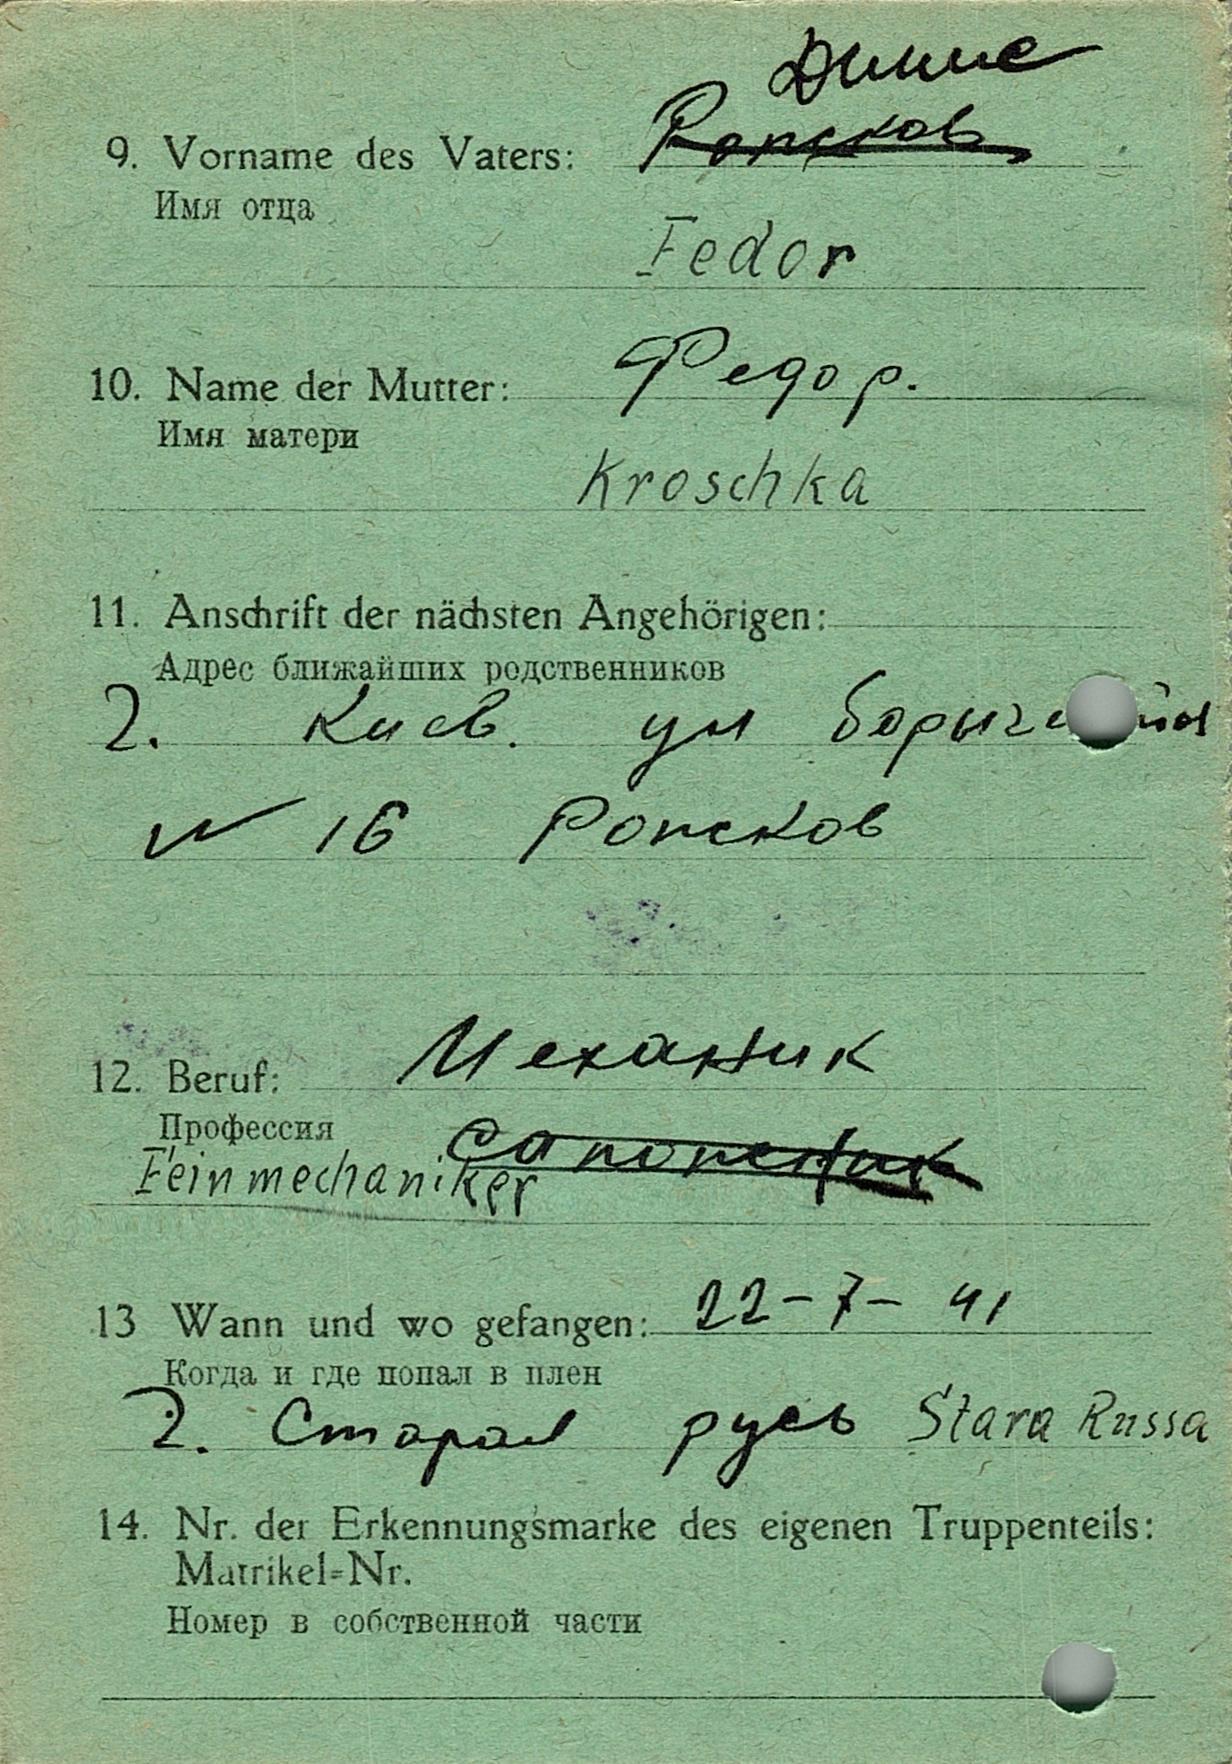 9. Vorname des Vaters: Ропсков
Имя отца
Fedor
10. Name der Mutter: Федор.
Имя матери
Kroschka
11. Anschrift der nächsten Angehörigen:
Адрес ближайших родственников
г. Киев. ул
№ 16 Ропсков
12. Beruf: Механик
Профессия
Feinmechaniker
13 Wann und wo gefangen: 22-7-41
Когда и где попал в плен
г. Старая русь Stara Russa
14. Nr. der Erkennungsmarke des eigenen Truppenteils:
Matrikel=Nr.
Номер в собственной части